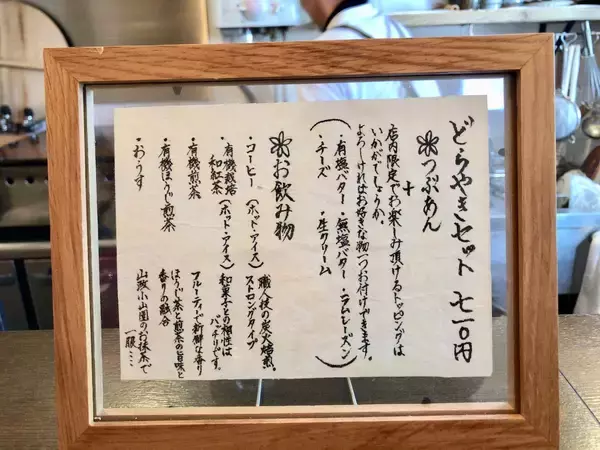 どらやきセット 七一〇円
つぶあん
+
店内限定でお楽しみ頂けるトッピングは
いかがでしょうか。
よろしければお好きな物一つお付けできます。
(・有塩バター・無塩バター・ラムレーズン
・チーズ ・生クリーム)
お飲み物
・コーヒー(ホット・アイス) 職人技の炭火焙煎。
ストロングタイプ
・有機栽培
和紅茶(ホット・アイス) 和菓子との相性は
バッチリです。
・有機煎茶 フルーティで新鮮な香り
・有機ほうじ煎茶 ほうじ茶と煎茶の旨味と
香りの融合
・おうす 山政小山園のお抹茶で
一服…。